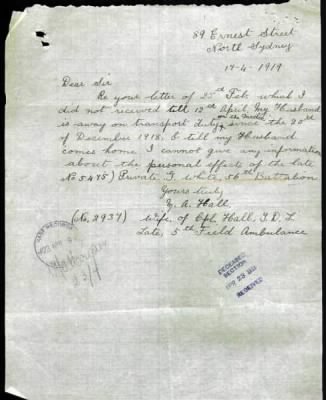 89 Ernest Street
North Sydney
17-4-1919
Dear Sir
Re your letter of 25th Feb. which I
did not received till 12th April, My Husband
is away on transport duty on the since the 20th
of December 1918, & till my Husband
comes home I cannot give any information
about the personal effects of the late
No 5475) Private G White, 56th Battalion
Yours truly
A. Hall
(No, 2937) Wife of Cpl. Hall, T.D.L
Late, 5th Field Ambulance
DECEASED
SECTION
APR 23 1919
RECEIVED